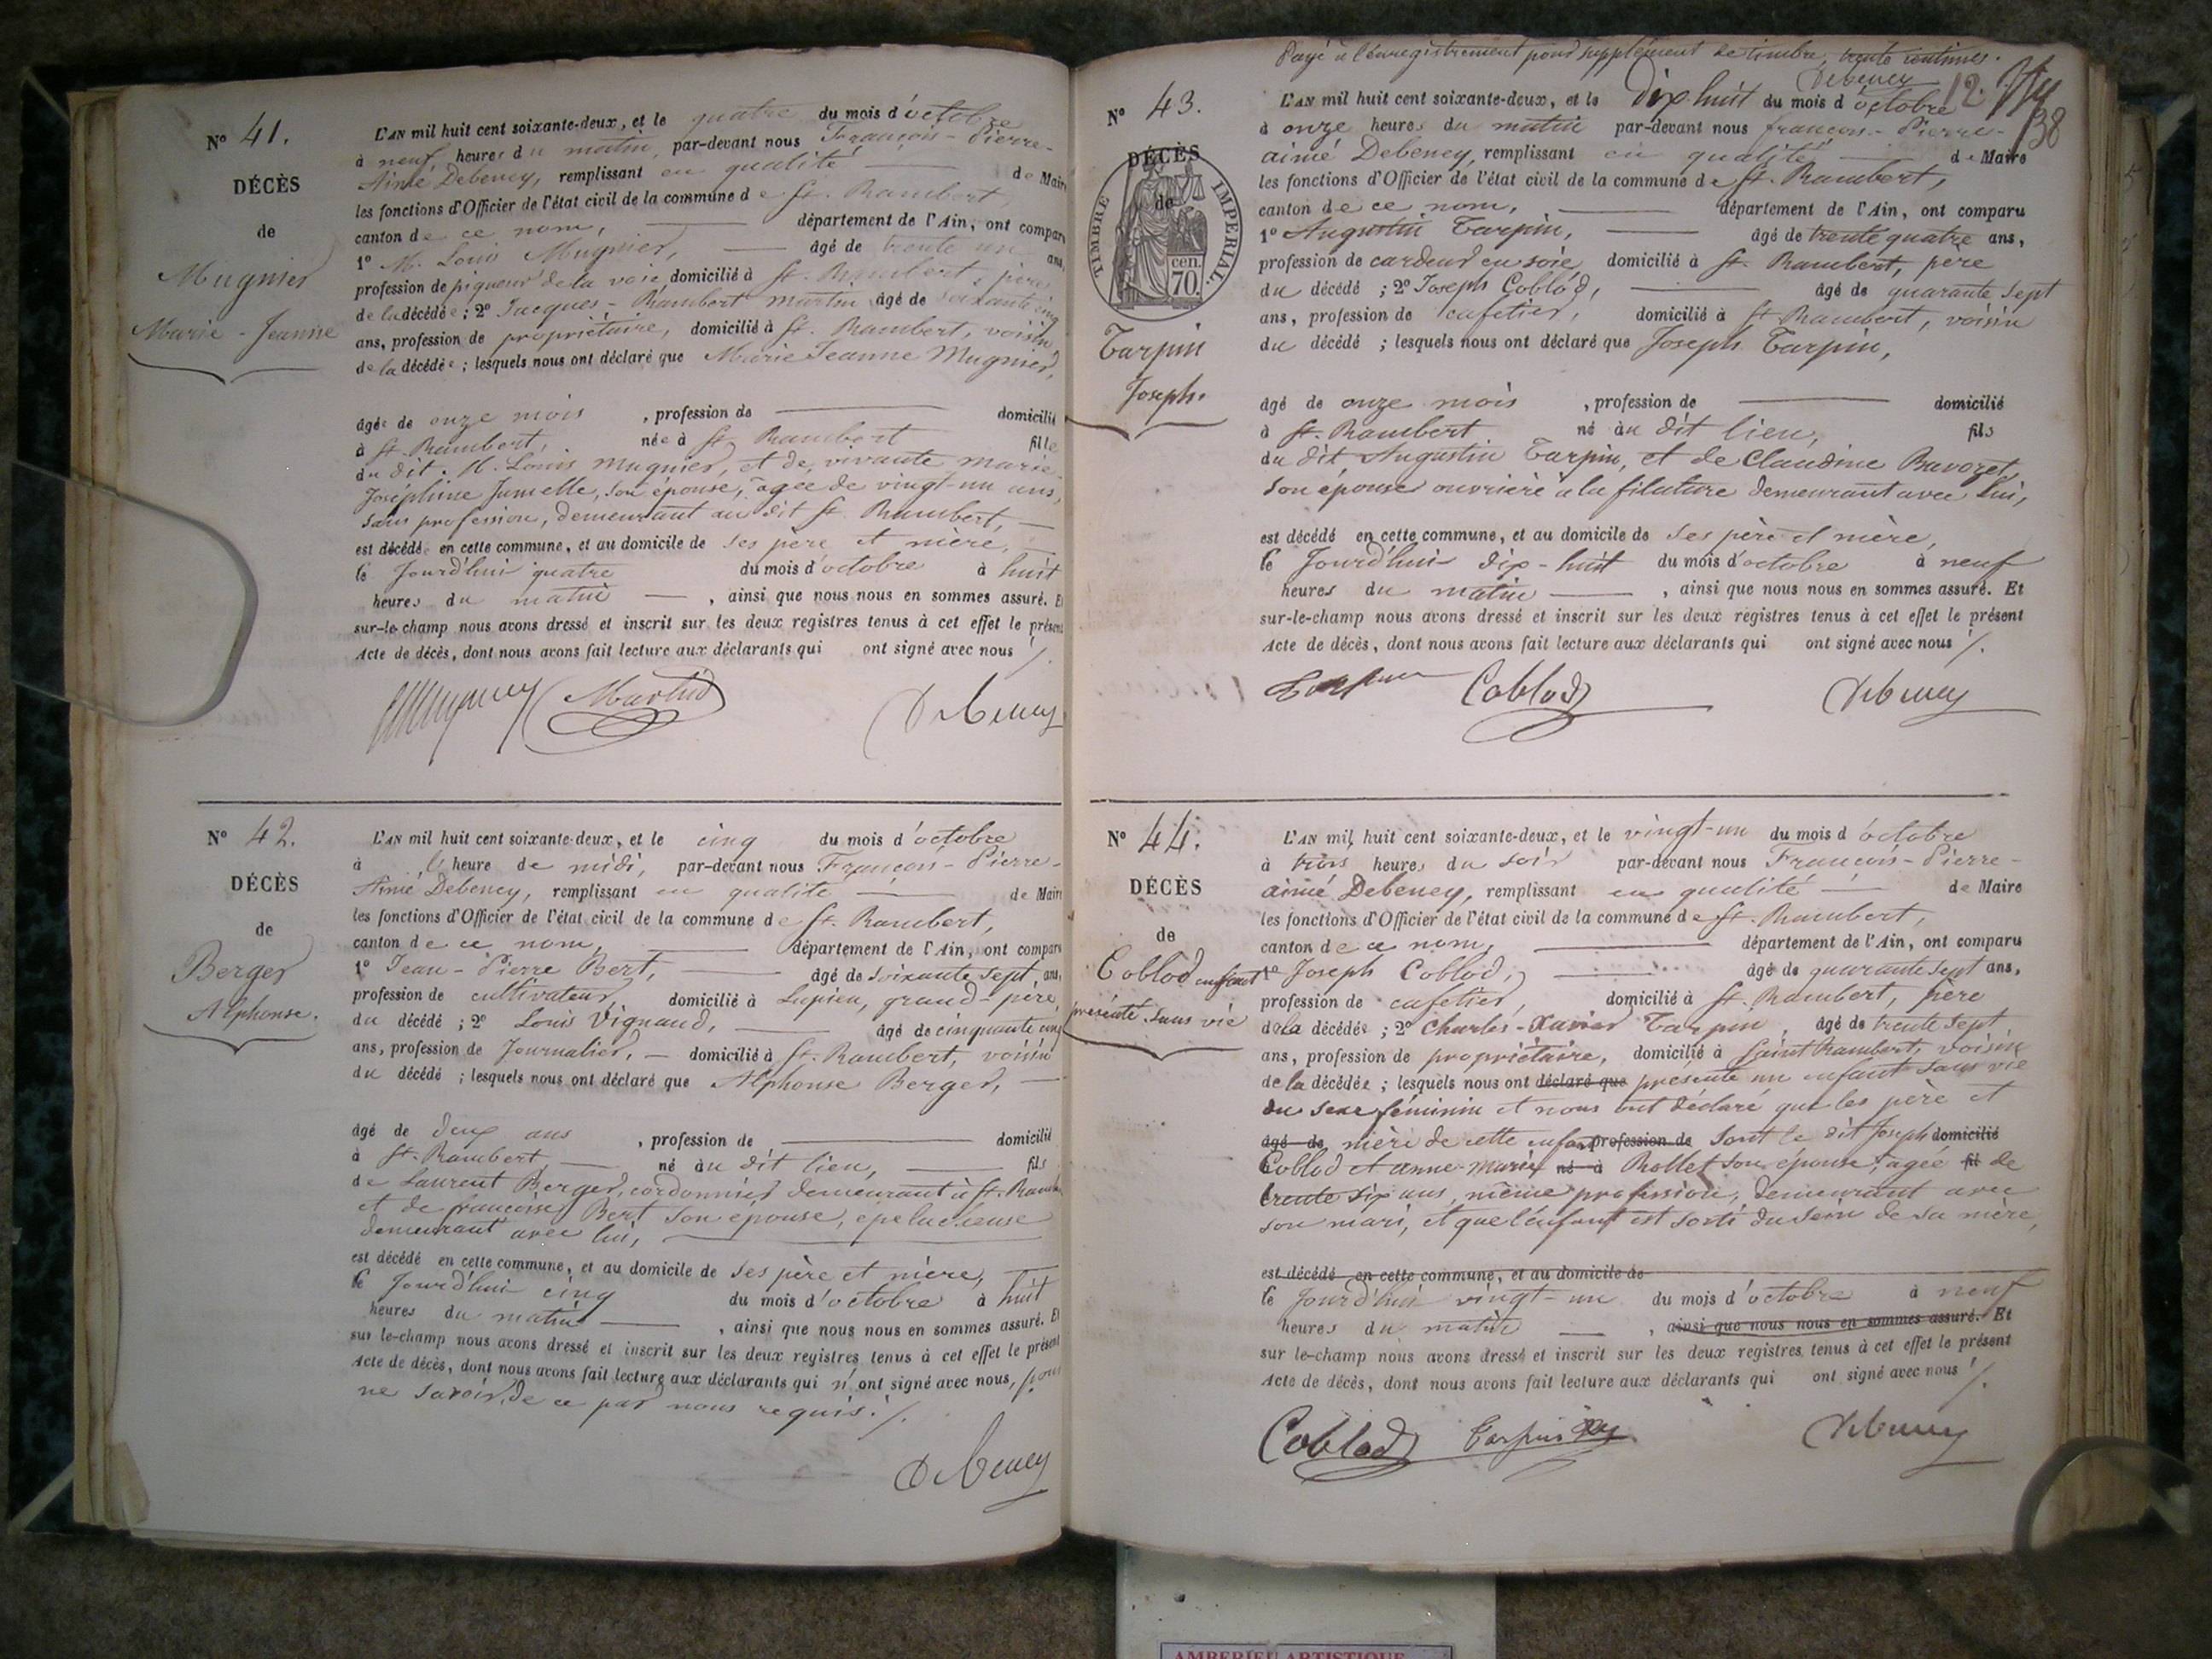 N° 41.
DÉCÈS
de
Mugnier
Marie-Jeanne
L'AN mil huit cent soixante-deux, et le quatre du mois d'octobre
à neuf heures du matin, par-devant nous François-Pierre-
Aimé Debeney, remplissant en qualité de Maire
les fonctions d'Officier de l'état civil de la commune de St. Rambert,
canton de ce nom, département de l'Ain, ont comparu
1° M. Louis Mugnier, âgé de trente un ans,
profession de piqueur de la voie, domicilié à St. Rambert, père
de la décédée ; 2° Jacques-Rambert Martin âgé de soixante cinq
ans, profession de propriétaire, domicilié à St. Rambert, voisin
de la décédée ; lesquels nous ont déclaré que Marie Jeanne Mugnier,
âgée de onze mois, profession de domicilié
à St. Rambert, née à St. Rambert fille
du dit M. Louis Mugnier, et de vivante Marie
Joséphine Jumelle, son épouse, âgée de vingt-un ans,
sans profession, demeurant au dit St. Rambert,
est décédée en cette commune, et au domicile de ses père et mère,
le Jourd'hui quatre du mois d'octobre à huit
heures du matin, ainsi que nous nous en sommes assuré. Et
sur-le-champ nous avons dressé et inscrit sur les deux registres tenus à cet effet le présent
Acte de décès, dont nous avons fait lecture aux déclarants qui ont signé avec nous /.
Martin Debeney
N° 42.
DÉCÈS
de
Berger
Alphonse.
L'AN mil huit cent soixante-deux, et le cinq du mois d'octobre
à l'heure de midi, par-devant nous François-Pierre-
Aimé Debeney, remplissant en qualité de Maire
les fonctions d'Officier de l'état civil de la commune de St. Rambert,
canton de ce nom, département de l'Ain, ont comparu
1° Jean-Pierre Bert, âgé de soixante sept ans,
profession de cultivateur, domicilié à Lupieu, grand-père
du décédé ; 2° Louis Vignaud, âgé de cinquante cinq
ans, profession de Journalier, domicilié à St. Rambert, voisin
du décédé ; lesquels nous ont déclaré que Alphonse Berger,
âgé de deux ans, profession de domicilié
à St. Rambert né au dit lieu, fils
de Laurent Berger, cordonnier demeurant à St. Rambert
et de françoise Bert son épouse, éplucheuse
demeurant avec lui,
est décédé en cette commune, et au domicile de ses père et mère,
le Jourd'hui cinq du mois d'octobre à huit
heures du matin, ainsi que nous nous en sommes assuré. Et
sur le-champ nous avons dressé et inscrit sur les deux registres tenus à cet effet le présent
Acte de décès, dont nous avons fait lecture aux déclarants qui n'ont signé avec nous, pour
ne savoir, de ce par nous requis /.
Debeney
Payé à l'enregistrement pour supplément de timbre, trente centimes.
Debeney
12.
38
N° 43.
DÉCÈS
de
TIMBRE IMPÉRIAL.
cen.
70.
Tarpin
Joseph.
L'AN mil huit cent soixante-deux, et le dix huit du mois d'octobre
à onze heures du matin par-devant nous françois-Pierre-
aimé Debeney, remplissant en qualité de Maire
les fonctions d'Officier de l'état civil de la commune de St. Rambert,
canton de ce nom, département de l'Ain, ont comparu
1° Augustin Tarpin, âgé de trente quatre ans,
profession de cardeur en soie domicilié à St. Rambert, père
du décédé ; 2° Joseph Coblod, âgé de quarante sept
ans, profession de cafetier, domicilié à St. Rambert, voisin
du décédé ; lesquels nous ont déclaré que Joseph Tarpin,
âgé de onze mois, profession de domicilié
à St. Rambert né au dit lieu, fils
du dit Augustin Tarpin, et de Claudine Bavozet,
son épouse ouvrière à la filature demeurant avec lui,
est décédé en cette commune, et au domicile de ses père et mère,
le Jourd'hui dix-huit du mois d'octobre à neuf
heures du matin, ainsi que nous nous en sommes assuré. Et
sur-le-champ nous avons dressé et inscrit sur les deux registres tenus à cet effet le présent
Acte de décès, dont nous avons fait lecture aux déclarants qui ont signé avec nous /.
Tarpin Coblod Debeney
N° 44.
DÉCÈS
de
Coblod enfant
présenté sans vie
L'AN mil huit cent soixante-deux, et le vingt-un du mois d'octobre
à trois heures du soir par-devant nous François-Pierre-
aimé Debeney, remplissant en qualité de Maire
les fonctions d'Officier de l'état civil de la commune de St. Rambert,
canton de ce nom, département de l'Ain, ont comparu
1° Joseph Coblod, âgé de quarante sept ans,
profession de cafetier, domicilié à St. Rambert, père
de la décédée ; 2° Charles-Xavier Tarpin, âgé de trente sept
ans, profession de propriétaire, domicilié à Saint Rambert, voisin
de la décédée ; lesquels nous ont déclaré que présenté un enfant sans vie
du sexe féminin et nous ont déclaré que les père et
âgé de mère de cette enfant profession de sont le dit Joseph domicilié
Coblod et anne-Marie né à Rollet son épouse, âgée fil de
trente six ans, même profession, demeurant avec
son mari, et que l'enfant est sorti du sein de sa mère,
est décédé en cette commune, et au domicile de
le Jourd'hui vingt-un du mois d'octobre à neuf
heures du matin, ainsi que nous nous en sommes assuré. Et
sur le-champ nous avons dressé et inscrit sur les deux registres tenus à cet effet le présent
Acte de décès, dont nous avons fait lecture aux déclarants qui ont signé avec nous /.
Coblod Tarpin Debeney
AMBERIEU ARTISTIQUE